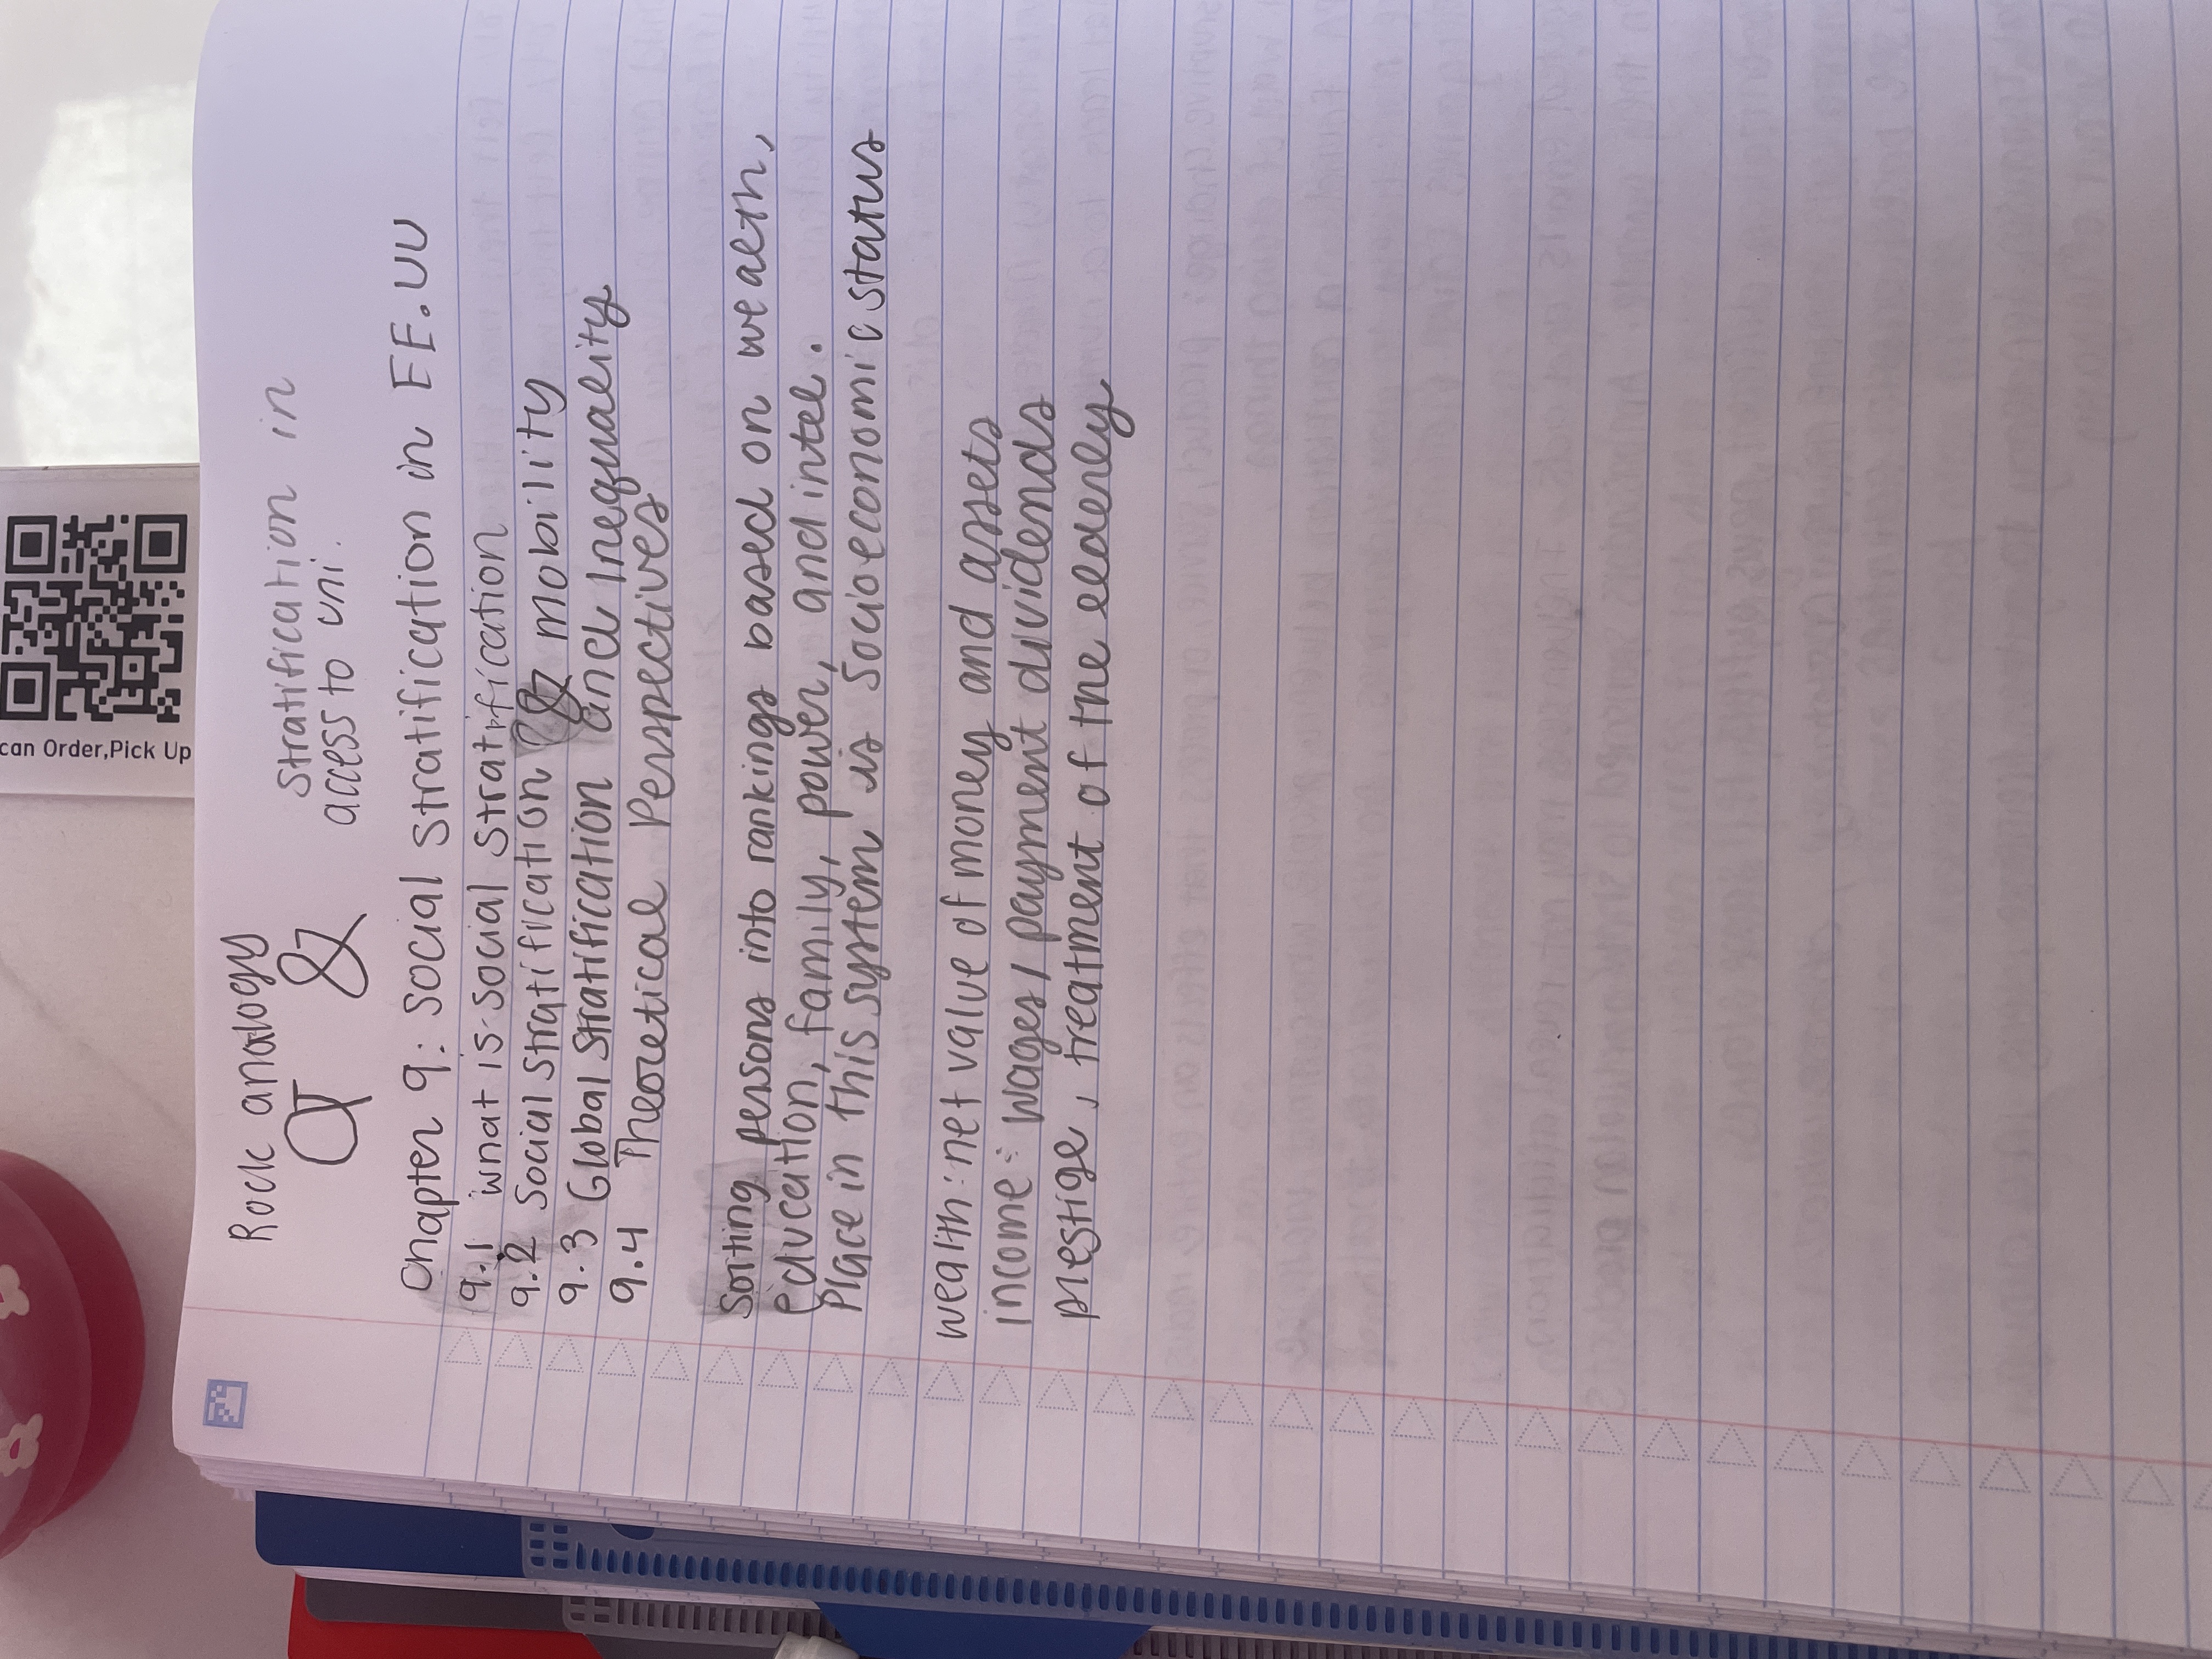 Rock analogy
& &
Stratification in
access to uni.
Chapter 9: Social Stratification in EE.UU
9.1 What is Social Stratification
9.2 Social Stratification & mobility
9.3 Global Stratification and Inequality
9.4 Theoretical Perspectives
Sorting persons into rankings based on wealth,
education, family, power, and intel.
Place in this system is socioeconomic status
wealth: net value of money and assets
income: wages/payment dividends
prestige, treatment of the elderly
can Order,Pick Up